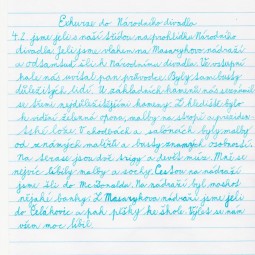 Exkurze do Národního divadla
4.2. jsme jeli s naší třídou na prohlídku Národního
divadla. Jeli jsme vlakem na Masarykovo nádraží
a odtamtud šli k Národnímu divadlu. Ve vstupní
hale nás uvítal pan průvodce. Byly tam busty
důležitých lidí. V základech kamenů nás seznámil
se třemi nejdůležitějšími kameny. Z hlediště bylo
k vidění železná opona, malby na stropě a prezidentské
lóže. V chodbách a salóncích byly malby
od známých malířů a busty známých osobností.
Na terase jsou dvě trigy a devět múz. Mně se
nejvíc líbily malby a sochy. Cestou na nádraží
jsme šli do McDonaldu. Na nádraží byl
nějaké banky. Z Masarykova nádraží jsme jeli
do Čelákovic a pak pěšky ke škole. Výlet se nám
všem moc líbil.